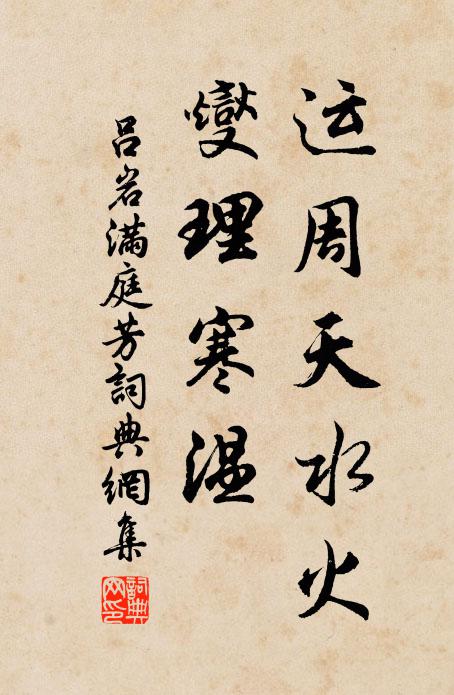 运周天水火
燮理寒温
吕岩满庭芳詞典網集
詞典网印